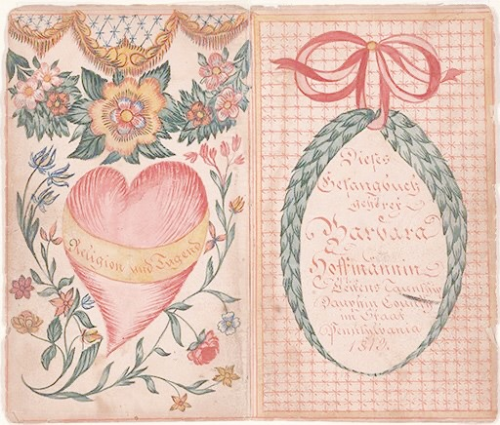 Religion und Tugend
Dieses
Gesangbuch
gehöret
Barbara
Hoffmannin
Township
Dauphin County
im Staat
Pennsylvania
1813.